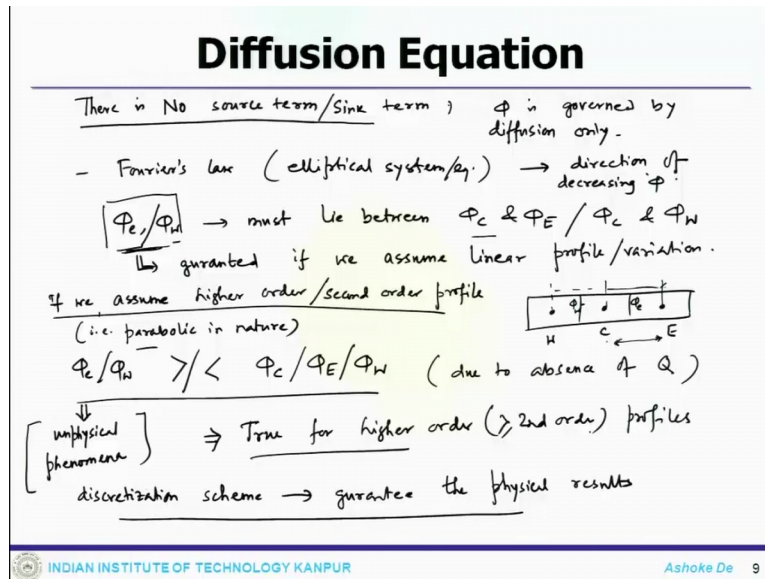 Diffusion Equation
There is No source term/Sink term ; Φ is governed by
diffusion only.
- Fourier's law (elliptical system/eq.) → direction of
decreasing Φ.
Φe,/Φw → must lie between ΦC & ΦE / ΦC & ΦW
↳ guranted if we assume linear profile/variation.
If we assume higher order/second order profile
(i.e. parabolic in nature)
Φw Φe
W C E
Φe/Φw >/< ΦC/ΦE/ΦW (due to absence of Q)
⇓
[unphysical
phenomena] ⇒ True for higher order (≥ 2nd order) profiles
discretization scheme → gurantee the physical results
INDIAN INSTITUTE OF TECHNOLOGY KANPUR
Ashoke De 9